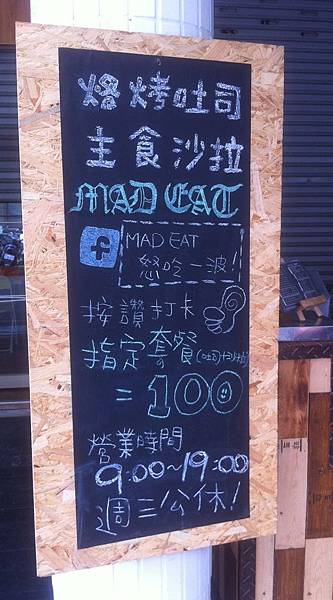 烙烤吐司
主食沙拉
MAD EAT
f
MAD EAT
怒吃一波!
按讚打卡
指定套餐(吐司+沙拉+飲)
=100
營業時間
9:00~19:00
週三公休!